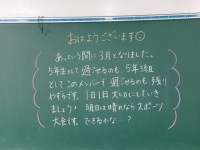 おはようございます
あっという間に3月となりました。
5年生として過ごせるのも、5年3組
としてこのメンバーで過ごせるのも、残り
わずかです。1日1日大切にしていき
ましょう! 明日は晴れならスポーツ
大会です。できるかな…?